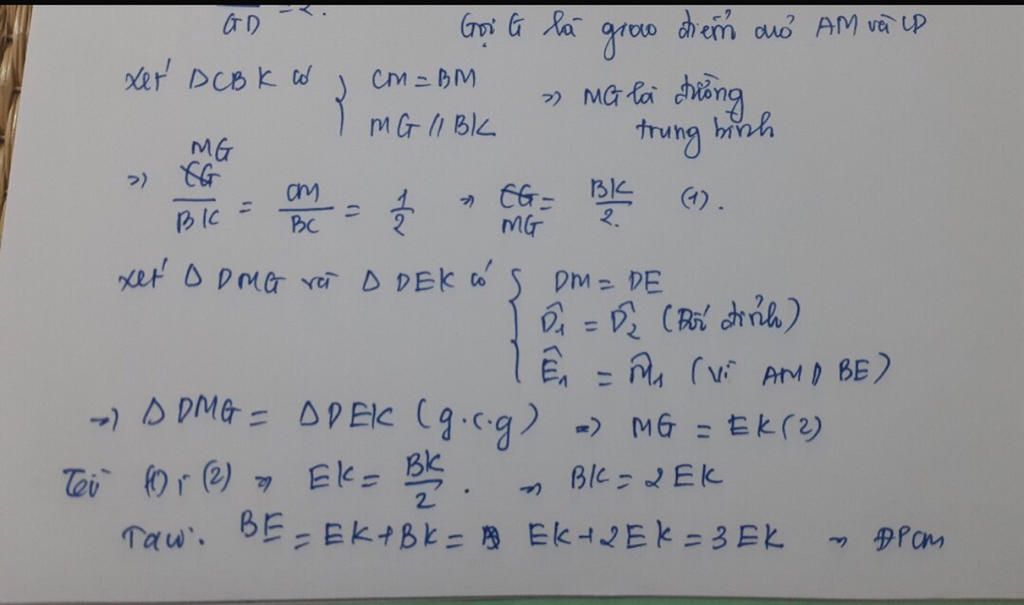 GD = 2.
Gọi G là giao điểm của AM và CD
xét ΔCBK có { CM = BM
MG // BK
=> MG là đường
trung bình
=> MG/BK = CM/BC = 1/2 => MG = BK/2 (1).
xét Δ DMG và Δ DEK có { DM = DE
D̂1 = D̂2 (Đối đỉnh)
Ê1 = M̂1 (Vì AM // BE)
=> Δ DMG = ΔDEK (g.c.g) => MG = EK (2)
Từ (1), (2) => EK = BK/2. => BK = 2EK
Ta có: BE = EK + BK = EK + 2EK = 3EK => ĐPCM